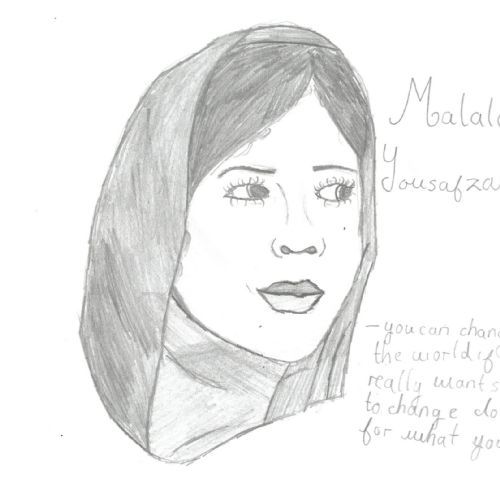 Malala
Yousafza
-you can chan
the world if
really wants
to change do
for what you